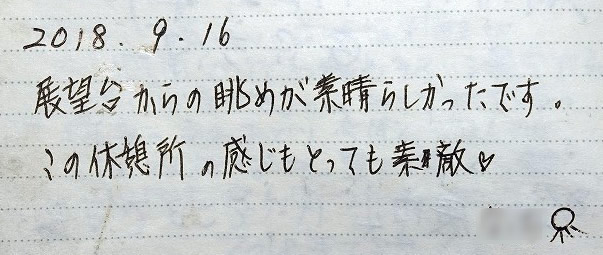 2018.9.16
展望台からの眺めが素晴らしかったです。
この休憩所の感じもとっても素敵♡